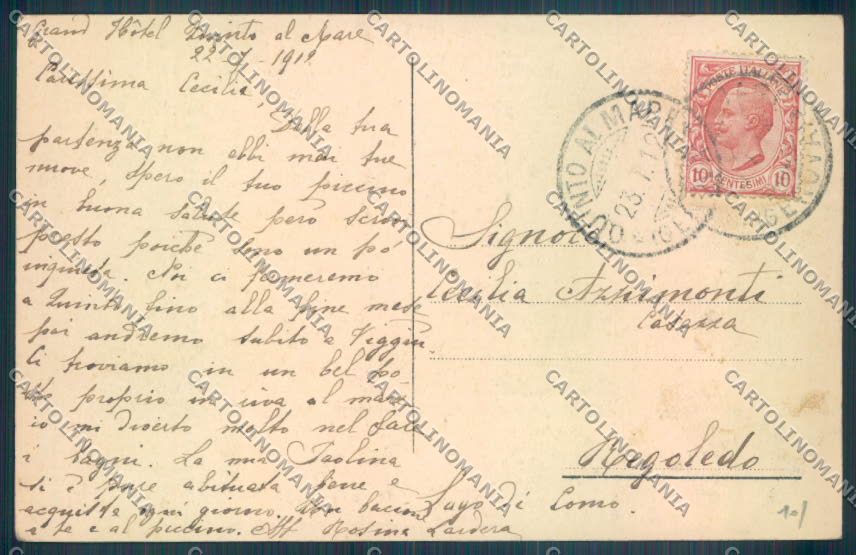 Grand Hôtel Quinto al Mare
22-7-1912
Carissima Cecilia,
Dalla tua
partenza non ebbi mai tue
nuove, spero il tuo piccino
in buona salute però scrivi
presto poichè sono un pó
inquieta. Noi ci fermeremo
a Quinto fino alla fine mese
poi andremo subito a Viggiù
Ci troviamo in un bel po-
sto proprio in riva al mare
io mi diverto molto nel fare
i bagni. La mia Paolina
si è pure abituata bene e
acquista ogni giorno. Un bacione
a te e al piccino. Aff Rosina Lardera
POSTE ITALIANE
10 CENTESIMI 10
QUINTO AL MARE
23.7.12
GENOVA
Signora
Cecilia Azzimonti
Casazza
Regoledo
Lago di Como.
10/
CARTOLINOMANIA